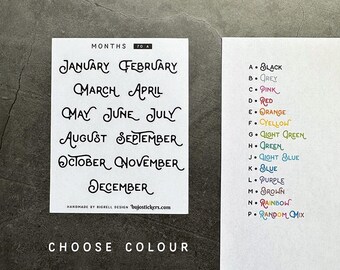 MONTHS 70 A
January February
March April
May June July
August September
October November
December
HANDMADE BY RIKRELL DESIGN bujostickers.com
CHOOSE COLOUR
A • Black
B • Grey
C • Pink
D • Red
E • Orange
F • Yellow
G • Light Green
H • Green
J • Light Blue
K • Blue
L • Purple
M • Brown
N • Rainbow
P • Random Mix